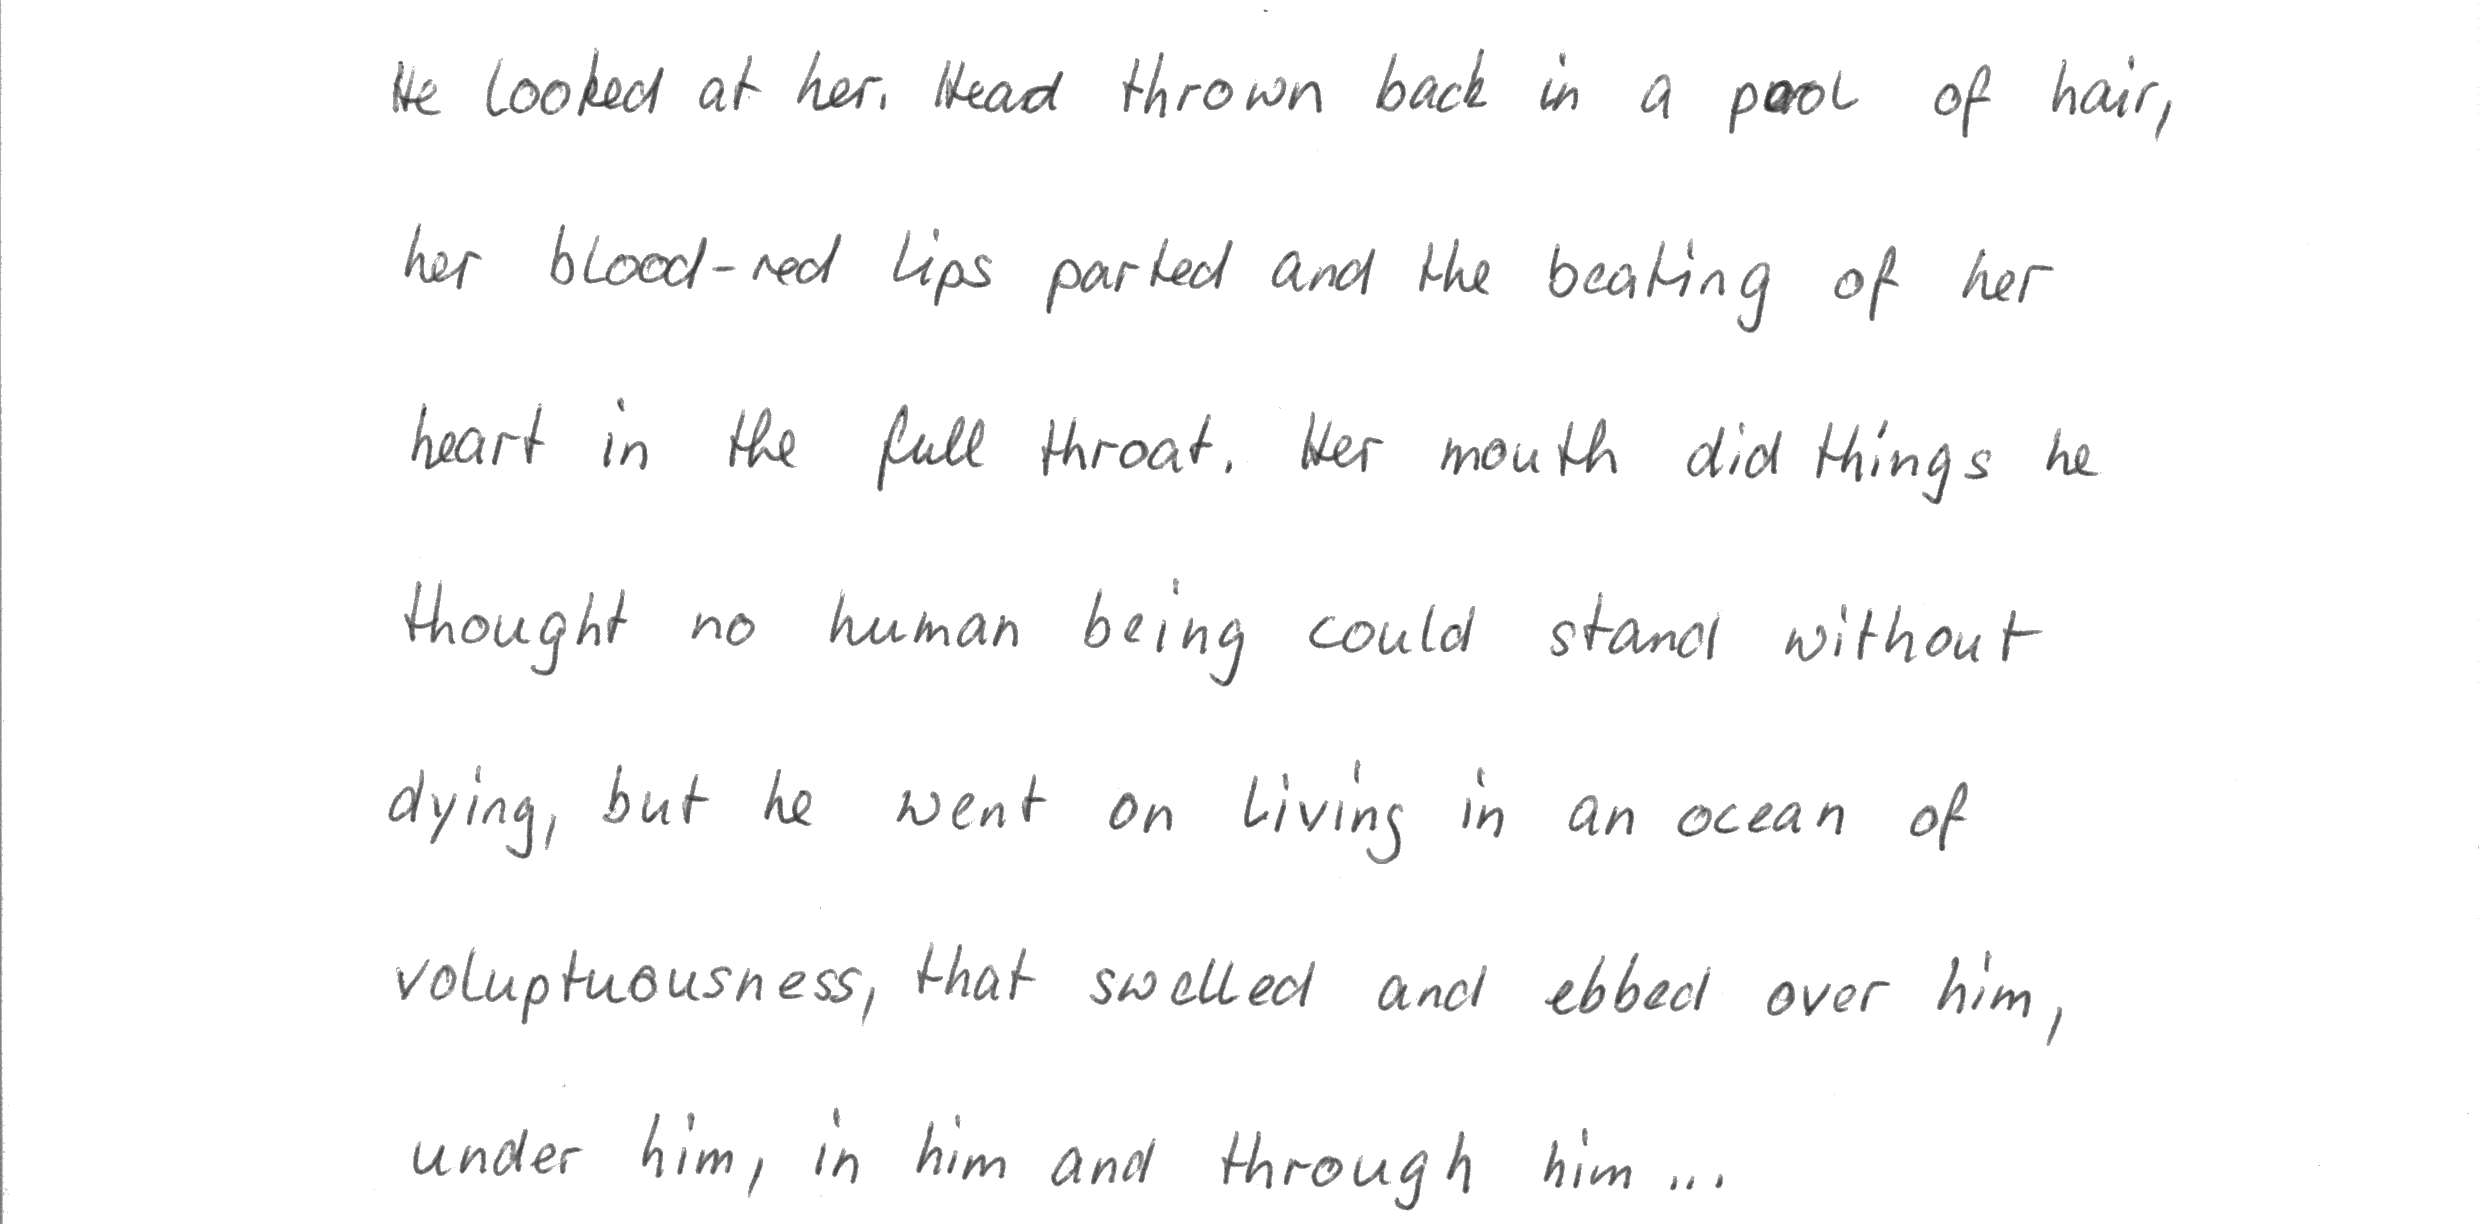 He looked at her. Head thrown back in a pool of hair,
her blood-red lips parted and the beating of her
heart in the full throat. Her mouth did things he
thought no human being could stand without
dying, but he went on living in an ocean of
voluptuousness, that swelled and ebbed over him,
under him, in him and through him...